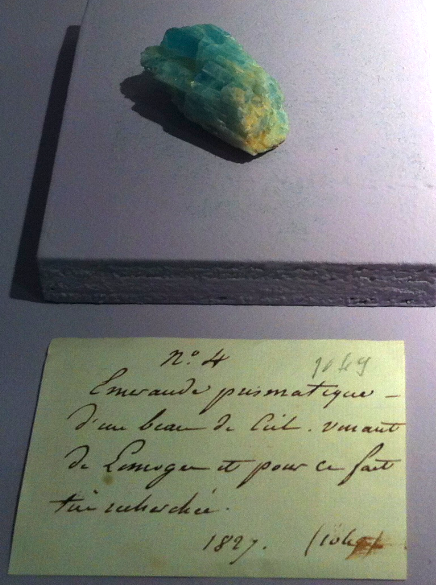 N.º 4
Emeraude prismatique -
d'un beau de Ciel. venant
de Limoges et pour ce fait
très recherchée.
1827.